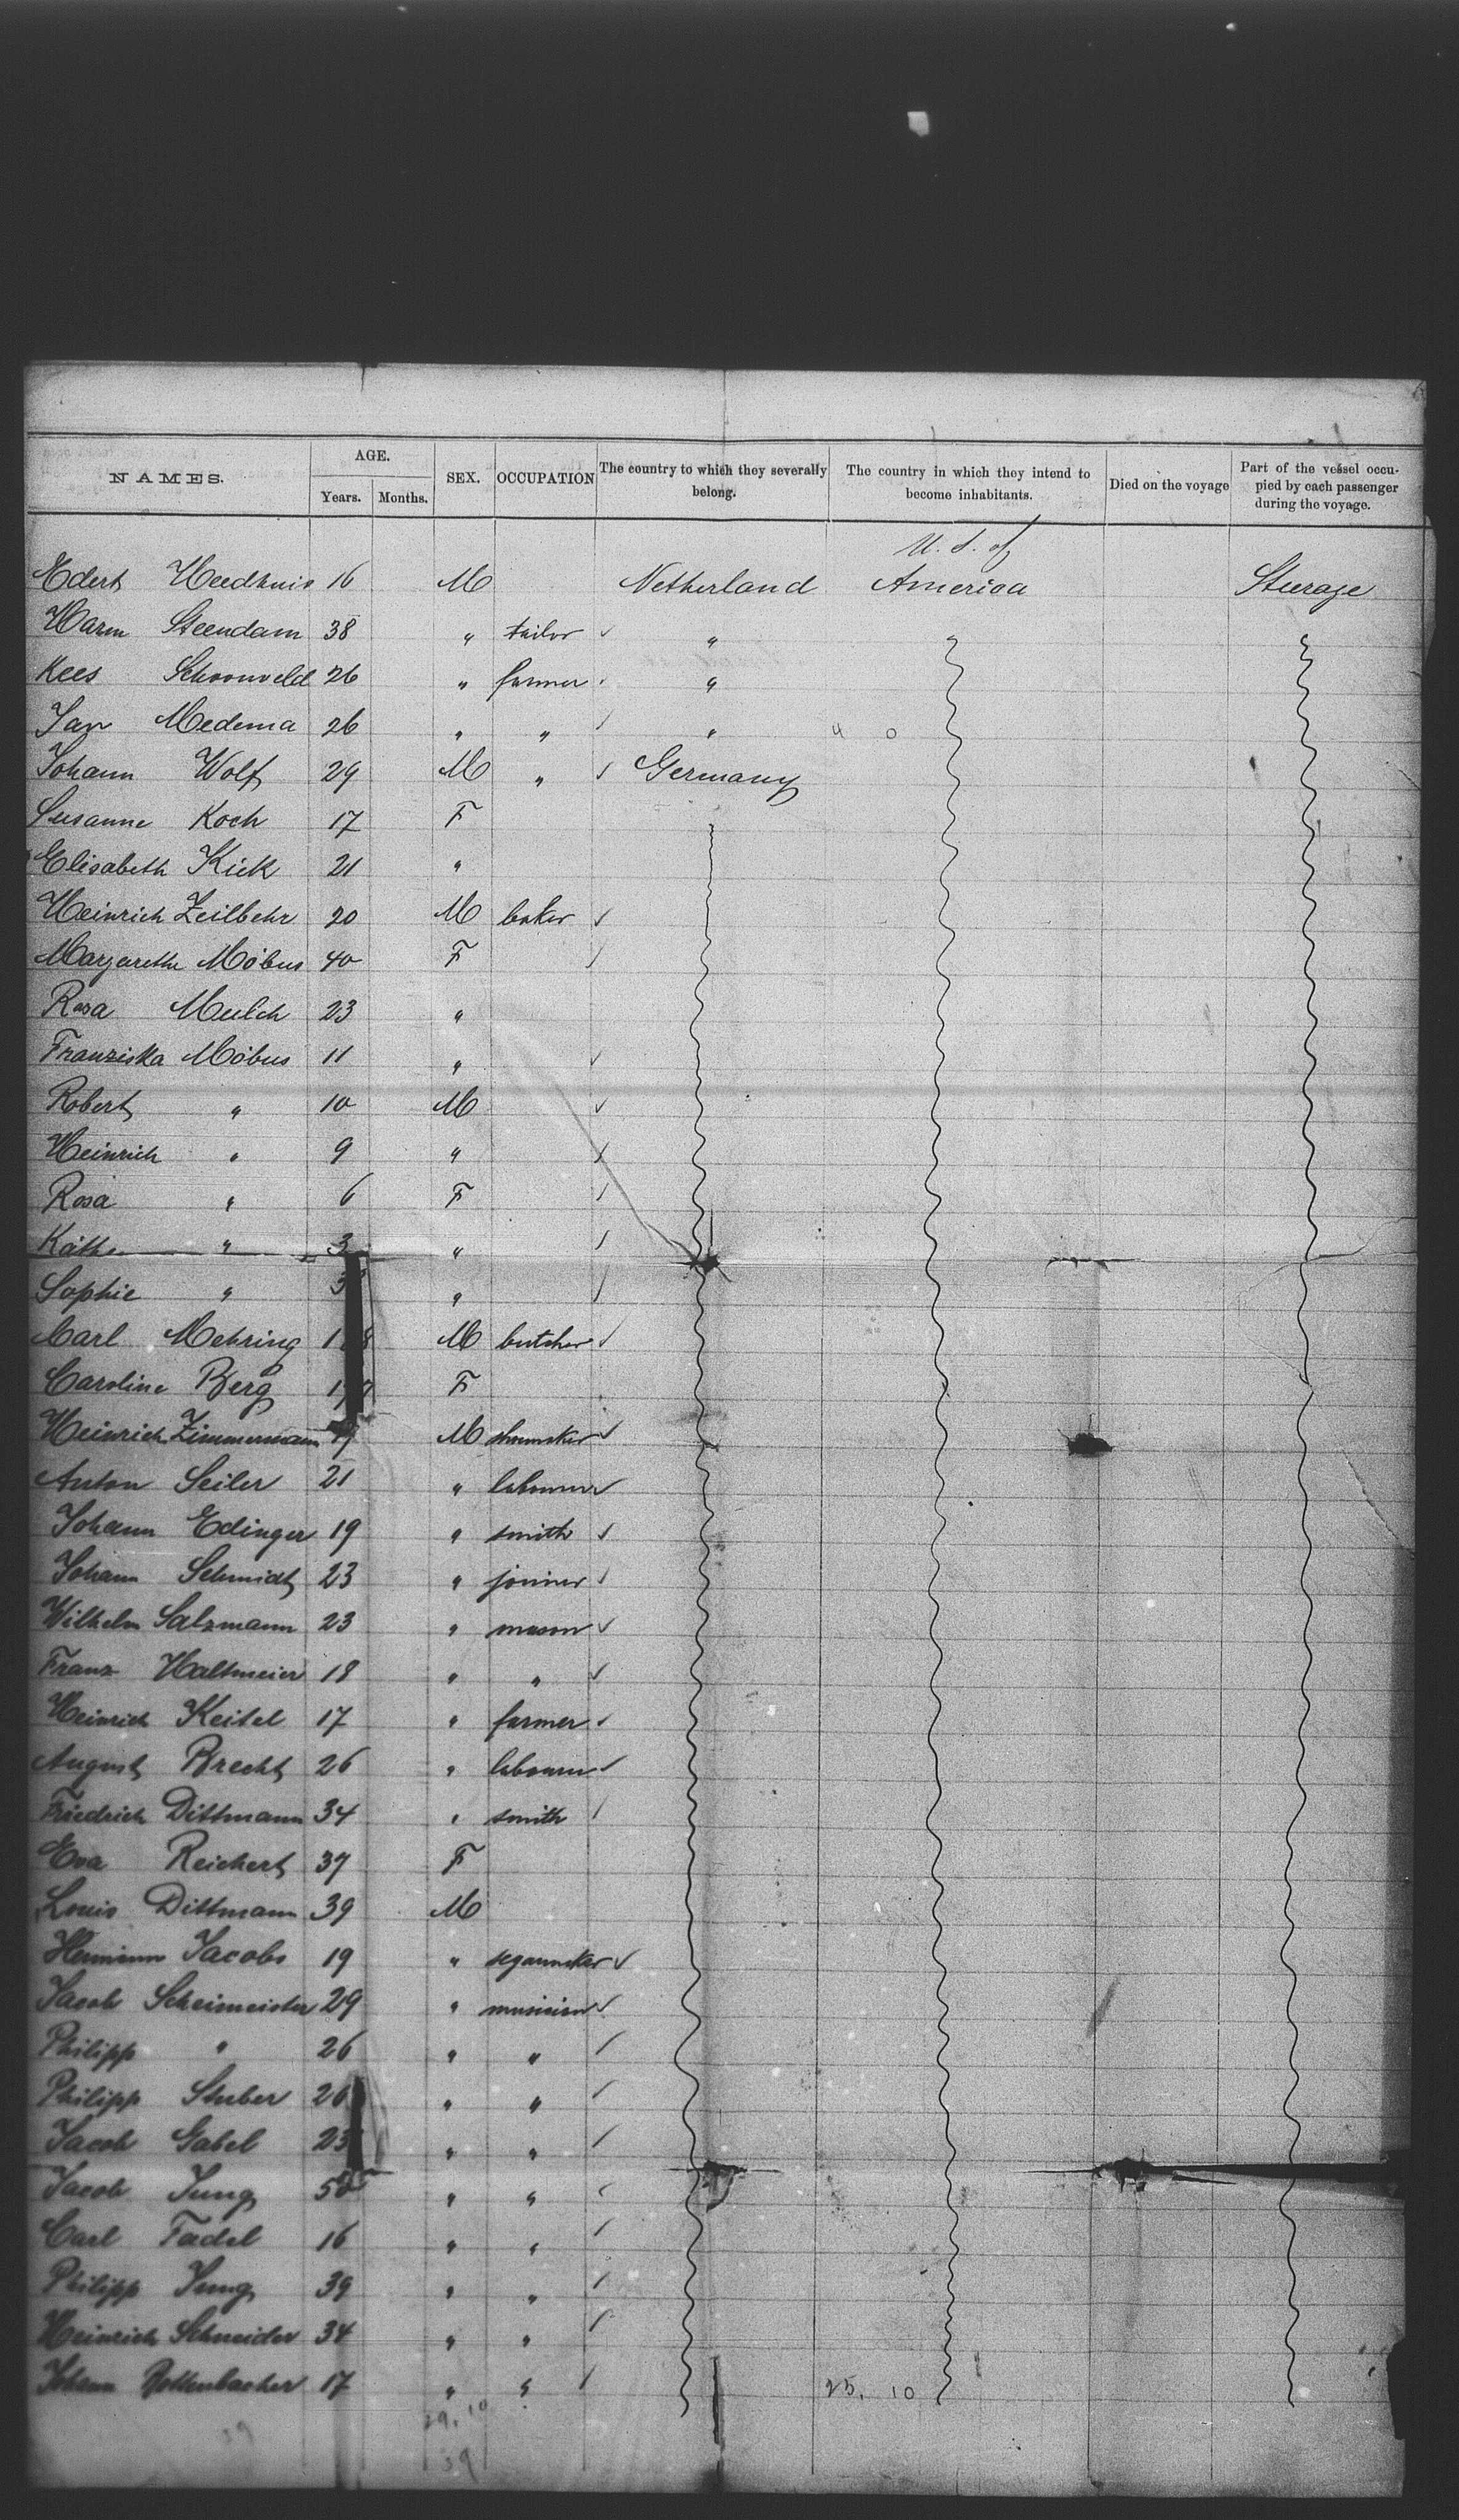 NAMES. AGE. SEX. OCCUPATION The country to which they severally belong. The country in which they intend to become inhabitants. Died on the voyage Part of the vessel occupied by each passenger during the voyage.
Years. Months.
U. S. of
Edert 16 M Netherland America Steerage
Harm Steendam 38 " tailor ✓ "
Kees Schoonveld 26 " farmer "
Jan Medema 26 " " ✓ " 4 0
Johann Wolf 29 M " ✓ Germany
Susanne Koch 17 F
Elisabeth Kick 21 "
Heinrich Zeilbehr 20 M baker ✓
Margarethe Möbus 40 F ✓
Rosa Mulch 23 "
Franziska Möbus 11 " ✓
Robert " 10 M ✓
Heinrich " 9 " ✓
Rosa " 6 F ✓
Käthe " 3 " ✓
Sophie " 3 " ✓
Carl Mehring 18 M butcher ✓
Caroline Berg 17 F
Heinrich Zimmermann M ✓
Anton Seiler 21 " labourer ✓
Johann Edinger 19 " smith ✓
Johann Schmidt 23 " joiner ✓
Wilhelm Salzmann 23 " mason ✓
Franz Haltmeier 18 " " ✓
Heinrich Keitel 17 " farmer ✓
August Brecht 26 " labourer ✓
Friedrich Dittmann 34 " smith ✓
Eva Reichert 37 F
Louis Dittmann 39 M
Hermann Jacobs 19 " segarmaker ✓
Jacob Scheimeister 29 " musician ✓
Philipp " 26 " " ✓
Philipp Stuber 26 " " ✓
Jacob Gabel 23 " " ✓
Jacob Jung 50 " " ✓
Carl Fadel 16 " " ✓
Philipp Jung 39 " " ✓
Heinrich Schneider 34 " " ✓
Johann Rottenbacher 17 " " ✓ 25. 10
29. 10
39 39